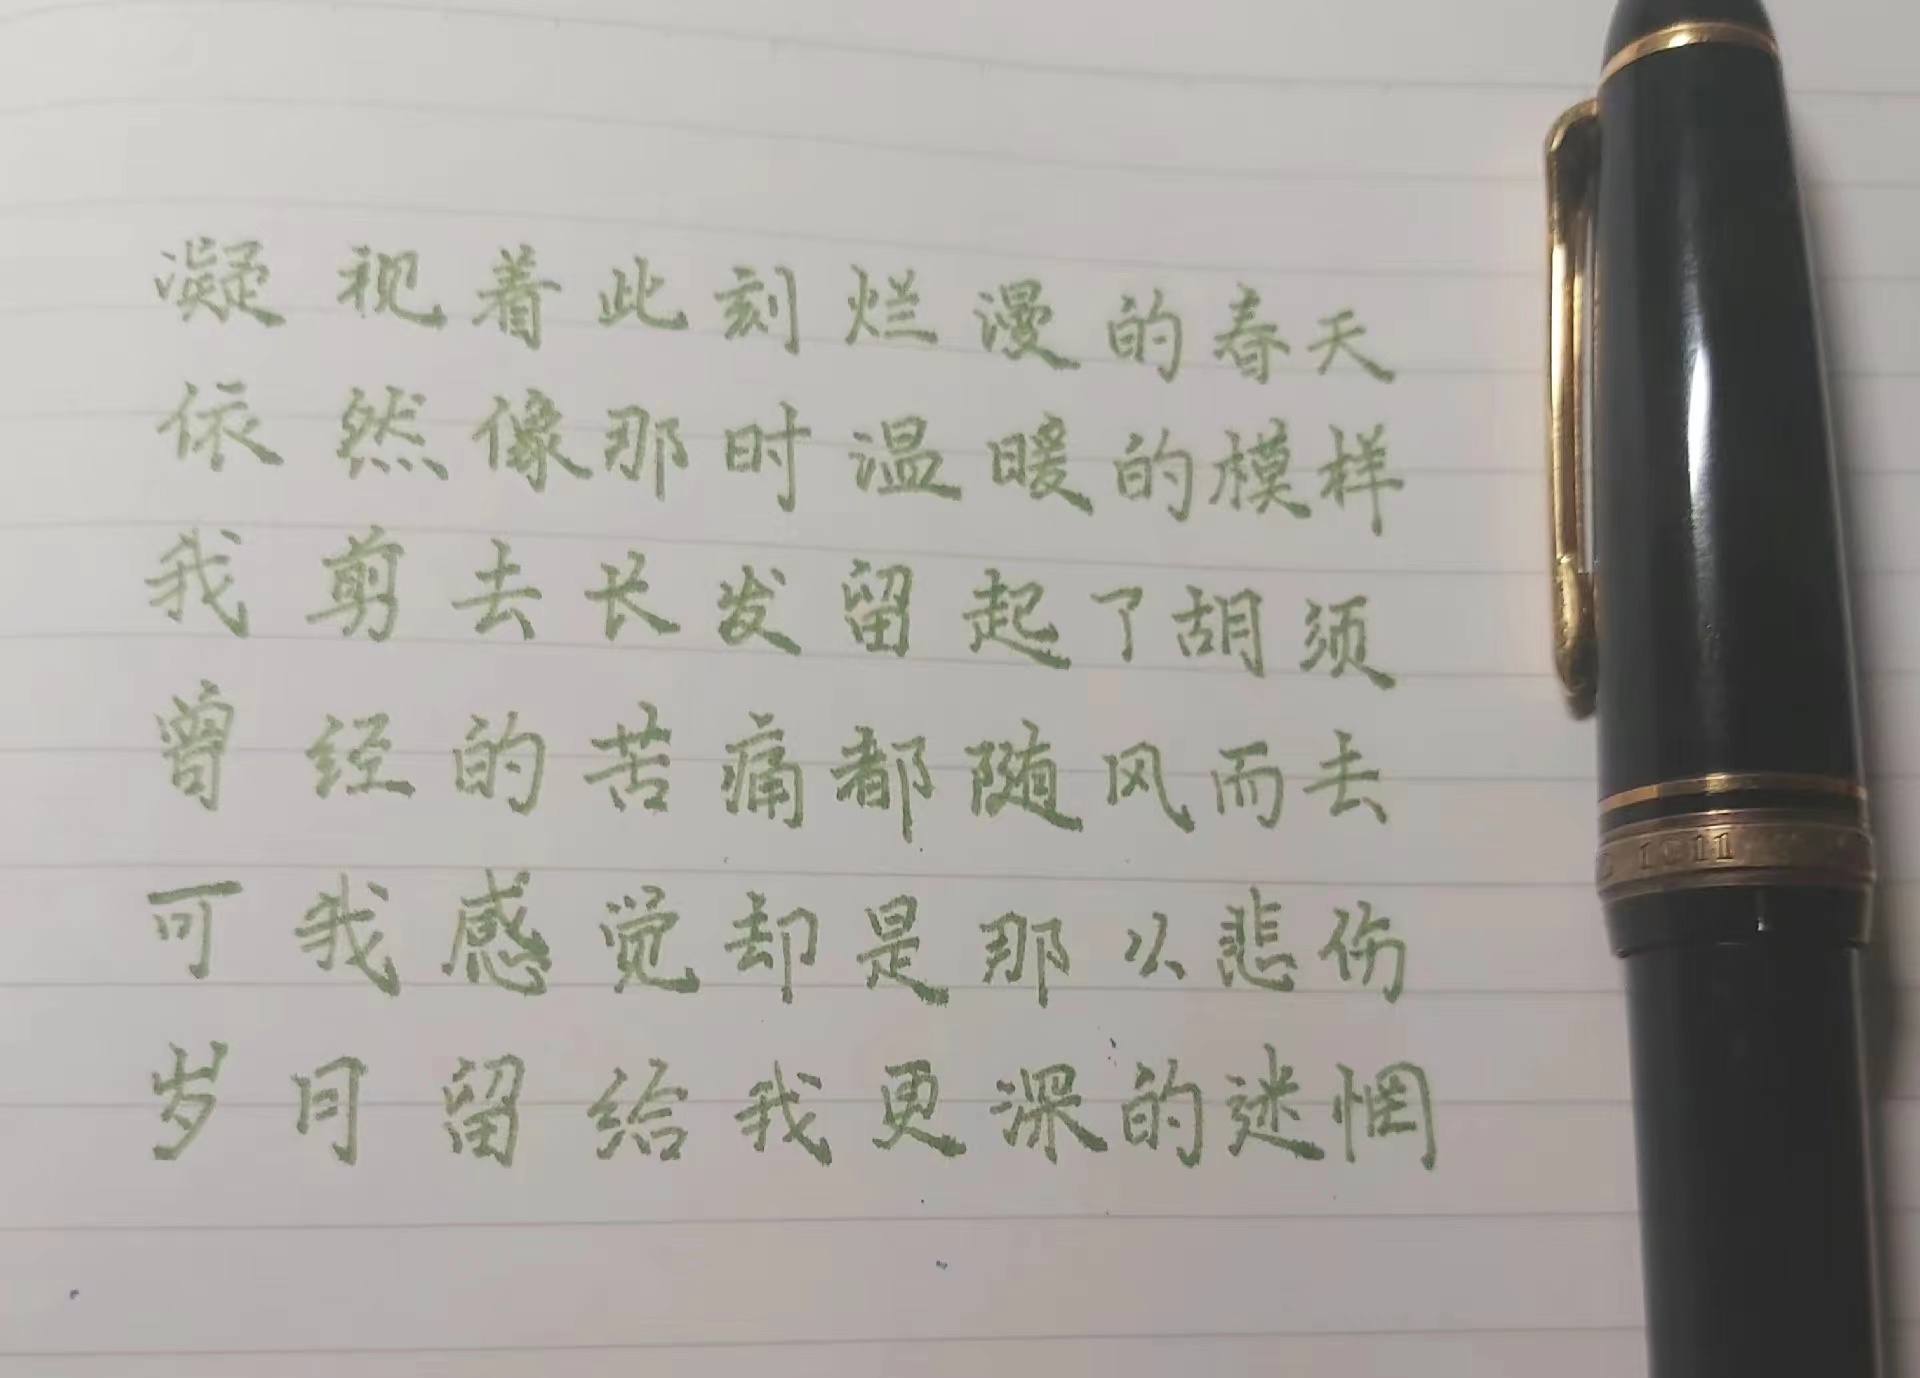 凝视着此刻烂漫的春天
依然像那时温暖的模样
我剪去长发留起了胡须
曾经的苦痛都随风而去
可我感觉却是那么悲伤
岁月留给我更深的迷惘
1911